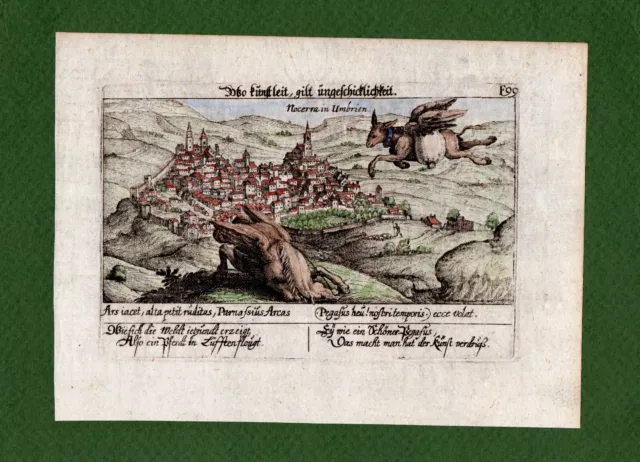 Wo kunst leit, gilt ungeschicklichkeit.
F99
Nocerra in Umbrien
Ars iacet, alta petit ruditas, Parnassius Arcas
(Pegasus heu! nostri temporis.) ecce volat.
Wie sich die Weldt ietzundt erzeigt,
Also ein Pferdt in Lufften fleugt.
Ey wie ein Schöner Pegasus,
Das macht man hat der kunst verdruß.